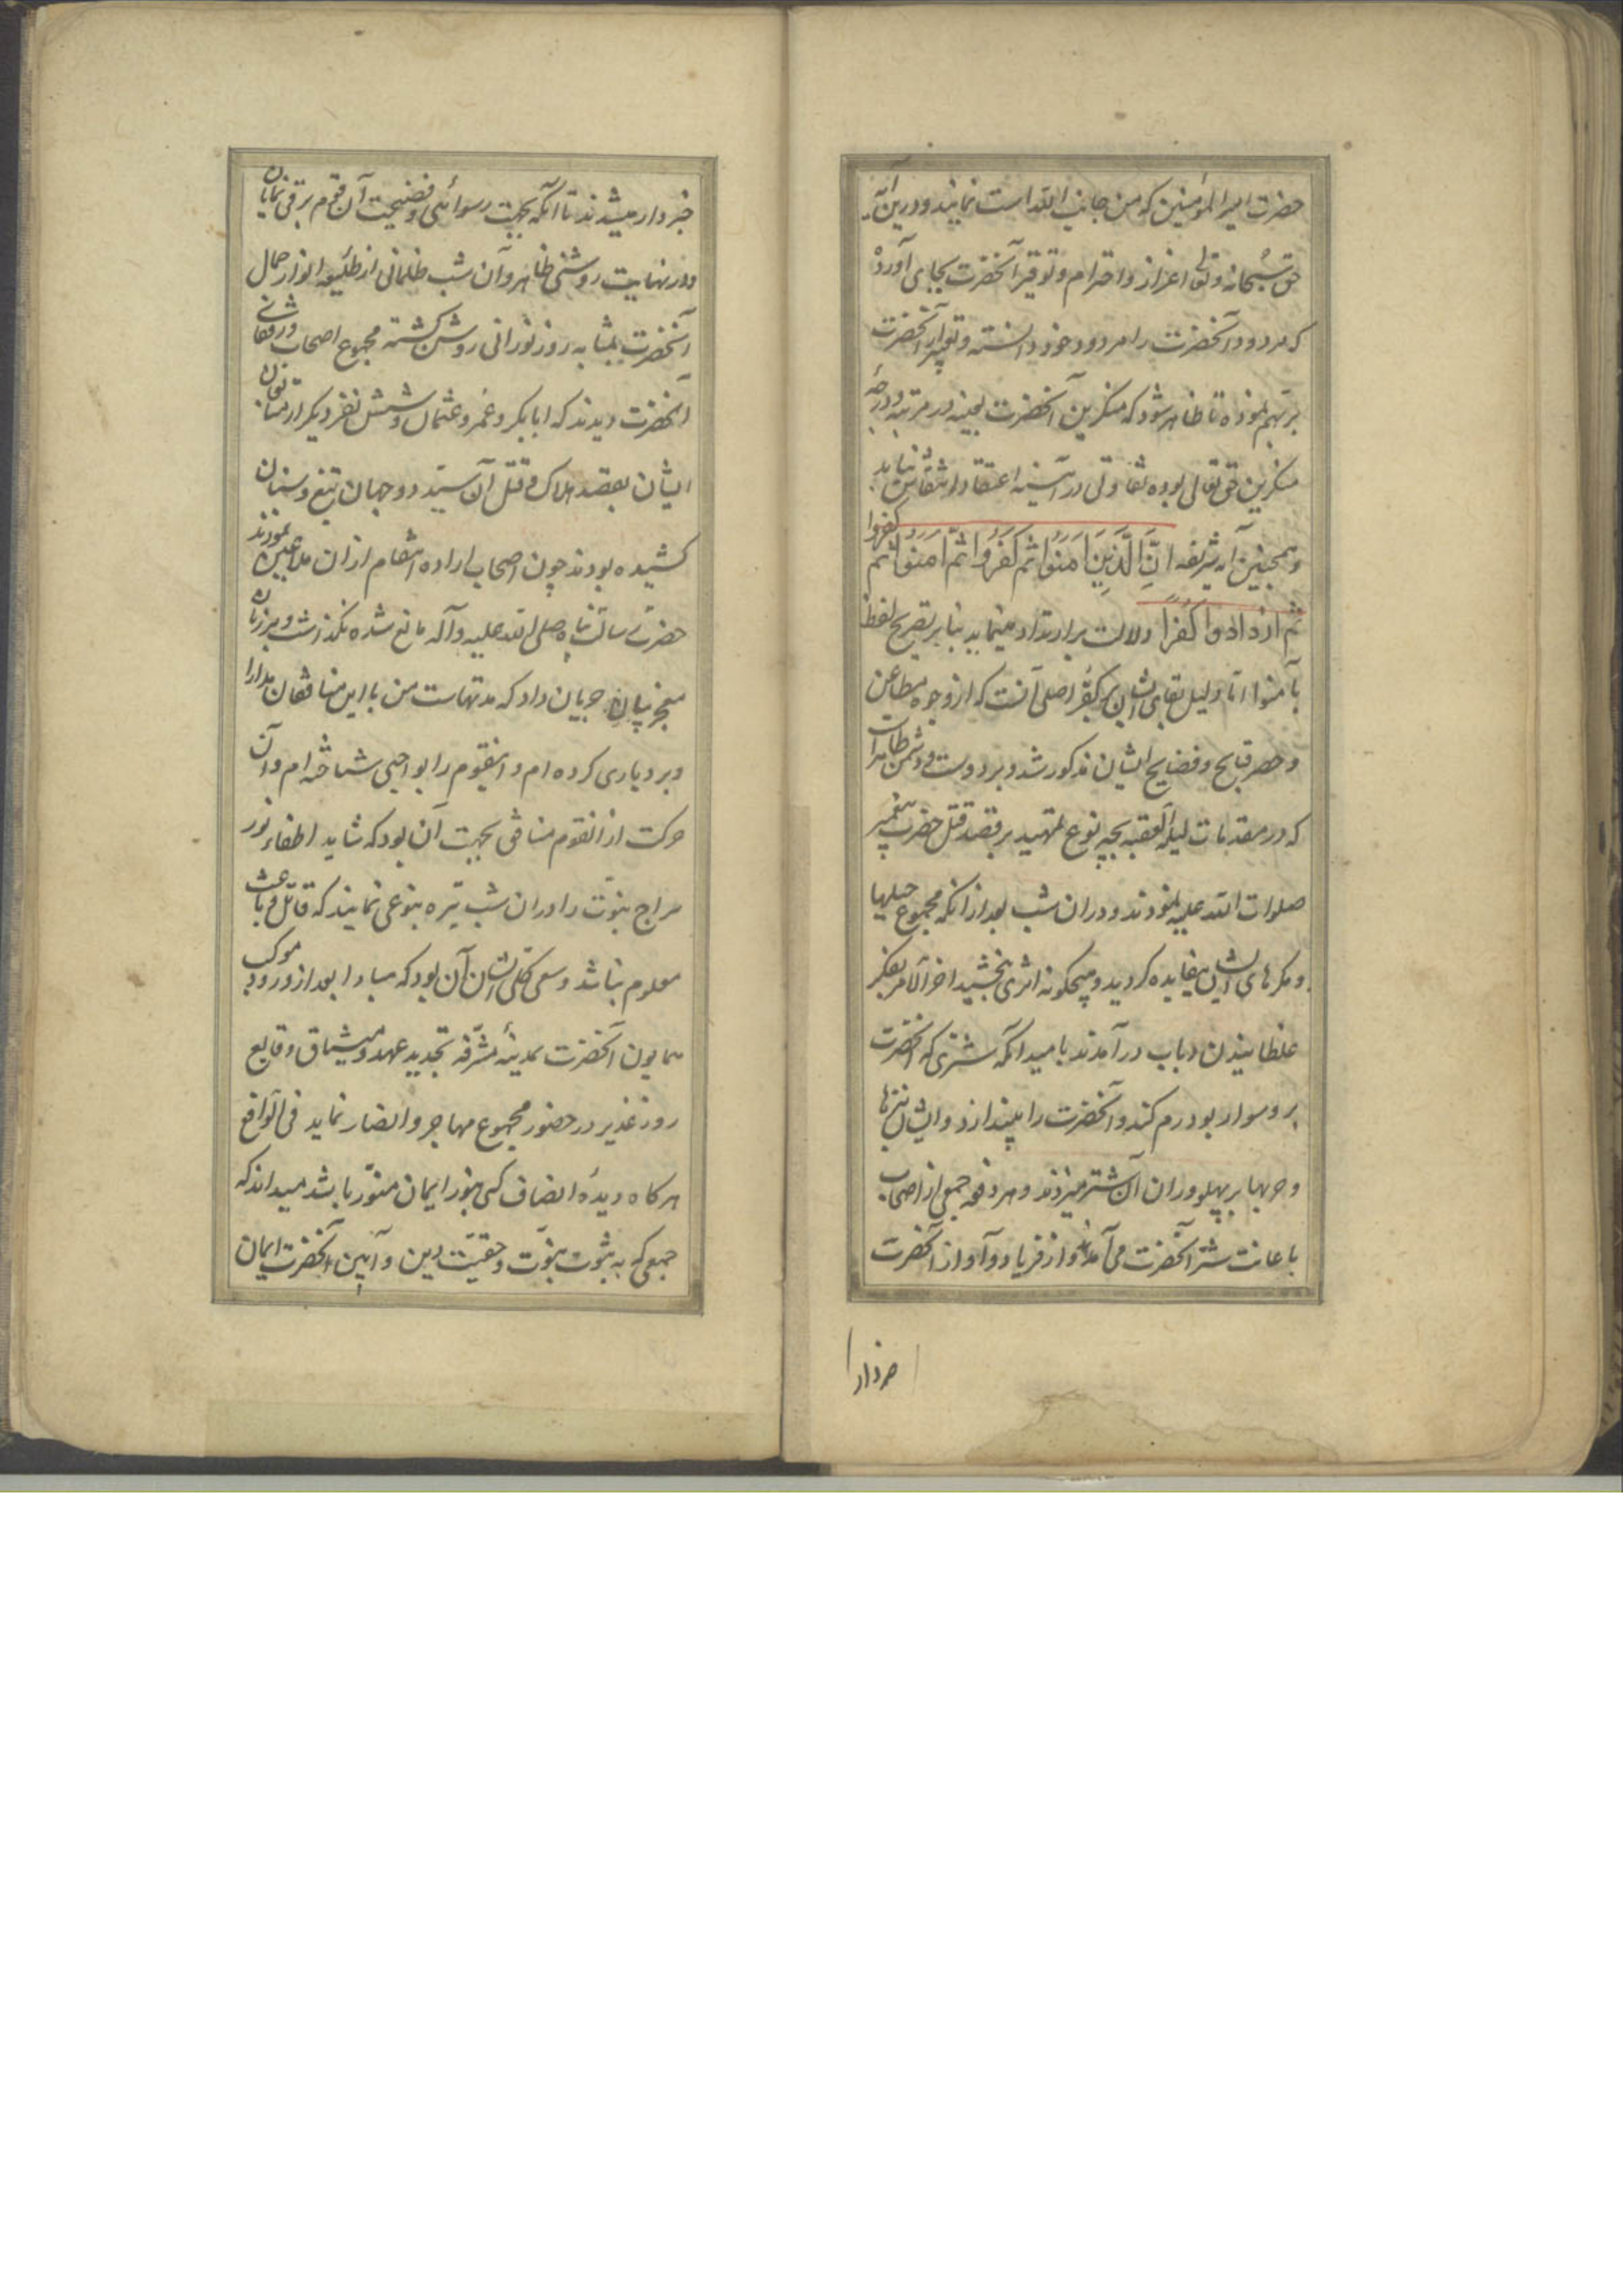 حضرت امیر المؤمنین که من جانب الله است نمایند و درین آیه
حق سبحانه و تعالی اعزاز و احترام و توقیر آنحضرت بجای آورده
که مردود آنحضرت را مردود خود دانسته و تعبیر از آنحضرت
بربهم نموده تا ظاهر شود که منکرین آنحضرت بعینه در مرتبه و درجهٔ
منکرین حق تعالی بوده تفاوتی در آیینه اعتقاد و نفاق ننماید
و همچنین آیه شریفه اِنَّ الَّذِینَ اٰمَنُوا ثُمَّ کَفَرُوا ثُمَّ اٰمَنُوا ثُمَّ کَفَرُوا
ثُمَّ ازْدَادُوا کُفْرًا دلالت بر ارتداد مینماید بنا بر تصریح لفظ
بآمنوا اما دلیل بقای ایشان بر کفر اصلی آنست که از وجوه مطاعن
و حصر قبایح و فضایح ایشان مذکور شد و بر دوست و دشمن ظاهر است
که در مقدمات لیلة العقبه بچه نوع تمهید بر قصد قتل حضرت پیغمبر
صلوات الله علیه نمودند و در ان شب بعد از انکه مجموع حیلها
و مکرهای ایشان بیفایده کردید و هیچکونه اثری نبخشید اخر الامر بفکر
غلطانیدن دباب در آمدند بامید انکه شتری که آنحضرت
بر و سوار بود رم کند و آنحضرت را بیندازد و ایشان نیزها
و حربها بر پهلو و ران آن شتر میزدند و هر دفعه جمعی از اصحاب
باعانت شتر آنحضرت می آمدند و از فریاد و آواز آنحضرت
خبردار
خبردار میشدند تا آنکه بجهت رسوائی و فضیحت آن قوم برقی نمایان
و در نهایت روشنی ظاهر و آن شب ظلمانی از طلیعه انوار جمال
آنحضرت بمثابه روز نورانی روشن کشته مجموع اصحاب و رفقای
آنحضرت دیدند که ابابکر و عمر و عثمان و شش نفر دیکر از متابعان
ایشان بقصد هلاک و قتل آن سید دو جهان تیغ و سنان
کشیده بودند چون اصحاب اراده انتقام از ان ملاعین نمودند
حضرت رسالت پناه صلی الله علیه و آله مانع شده نکذاشت و بر زبان
معجز بیان جریان داد که مدتهاست من با این منافقان مدارا
و بردباری کرده ام و اینقوم را بواجبی شناخته ام و آن
حرکت از انقوم منافق بجهت آن بود که شاید اطفاء نور
سراج نبوت را در ان شب تیره بنوعی نمایند که قاتل و باعث
معلوم نباشد و سعی کلی ایشان آن بود که مبادا بعد از ورود موکب
همایون آنحضرت بمدینهٔ مشرفه تجدید عهد و میثاق وقایع
روز غدیر در حضور مجموع مهاجر و انصار نماید فی الواقع
هر کاه دیدهٔ انصاف کسی بنور ایمان منور باشد میداند که
جمعی که به ثبوت نبوت و حقیت دین و آیین آنحضرت ایمان